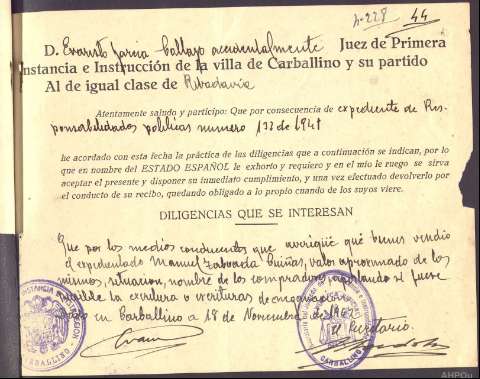 h-228 44
D. Evaristo Garcia Collazo accidentalmente Juez de Primera
Instancia e Instrucción de la villa de Carballino y su partido
Al de igual clase de Ribadavia
Atentamente saludo y participo: Que por consecuencia de expediente de Res-
ponsabilidades politicas numero 133 de 1941
he acordado con esta fecha la práctica de las diligencias que a continuación se indican, por lo
que en nombre del ESTADO ESPAÑOL le exhorto y requiero y en el mio le ruego se sirva
aceptar el presente y disponer su inmediato cumplimiento, y una vez efectuado devolverlo por
el conducto de su recibo, quedando obligado a lo propio cuando de los suyos viere.
DILIGENCIAS QUE SE INTERESAN
Que por los medios conducentes que averigüe qué bienes vendio
el expedientado Manuel Taboada Guiñas, valor aproximado de los
mismos, situacion, nombre de los compradores, aportando si fuere
posible la escritura o escrituras de enagenacion
Dado en Carballino a 18 de Noviembre de 1942
el Secretario.
CARBALLINO
CARBALLINO
AHPOu